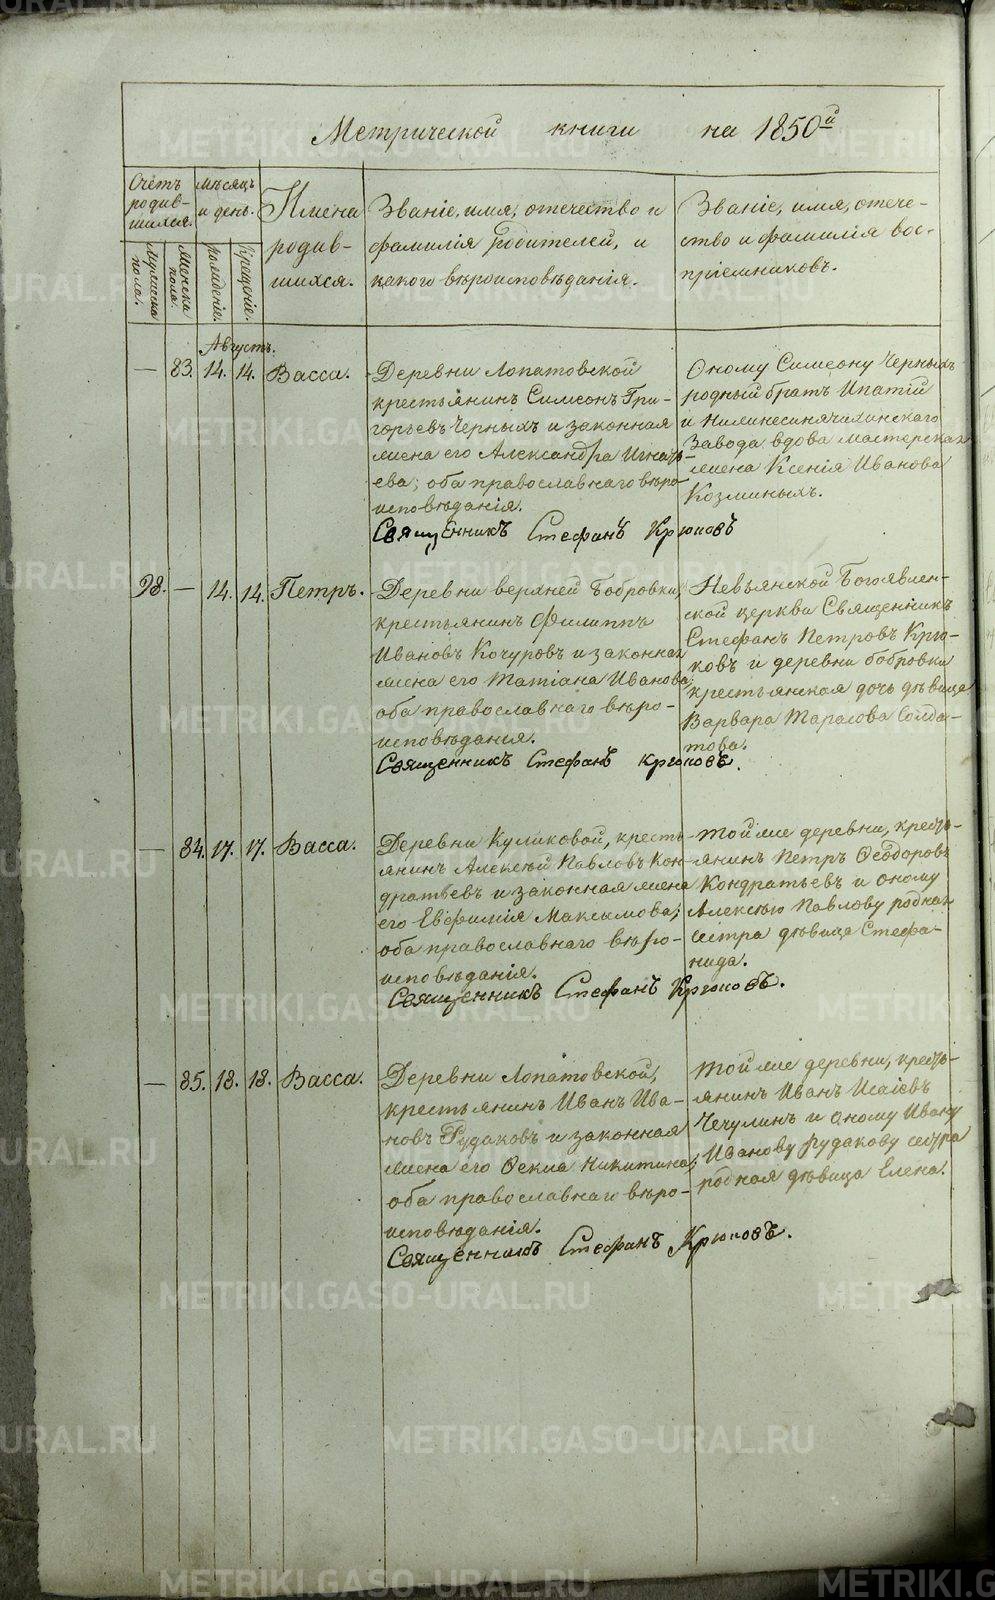 Метрической книги на 1850й
Счетъ родив-
шихся.
Мужеска пола.
Женска пола.
Мѣсяцъ и день.
Рожденіе.
Крещеніе.
Имена
родив-
шихся.
Званіе, имя, отечество и
фамилія родителей, и
какого вѣроисповѣданія.
Званіе, имя, отече-
ство и фамилія вос-
пріемниковъ.
Августъ.
— 83. 14. 14. Васса.
Деревни Лопатовской
крестьянинъ Симеонъ Гри-
горьевъ Черныхъ и законная
жена его Александра Игнать-
ева; оба православнаго вѣро-
исповѣданія.
Священникъ Стефанъ Крюковъ
Оному Симеону Черныхъ
родный братъ Ипатій
и Нижнесинячихинскаго
Завода вдова мастерская
жена Ксенія Иванова
Козминыхъ.
98. — 14. 14. Петръ.
Деревни верхней Бобровки,
крестьянинъ Филиппъ
Ивановъ Кочуровъ и законная
жена его Татіана Иванова;
оба православнаго вѣро-
исповѣданія.
Священникъ Стефанъ Крюковъ.
Невьянской Богоявлен-
ской церкви Священникъ
Стефанъ Петровъ Крю-
ковъ и деревни бобровки
крестьянская дочь дѣвица
Варвара Тарасова Солда-
това.
— 84. 17. 17. Васса.
Деревни Куликовой, кресть-
янинъ Алексѣй Павловъ Кон-
дратьевъ и законная жена
его Евфимія Максимова;
оба православнаго вѣро-
исповѣданія.
Священникъ Стефанъ Крюковъ.
Той же деревни, кресть-
янинъ Петръ Ѳеодоровъ
Кондратьевъ и оному
Алексѣю Павлову родная
сестра дѣвица Стефа-
нида.
— 85. 18. 18. Васса.
Деревни Лопатовской,
крестьянинъ Иванъ Ива-
новъ Рудаковъ и законная
жена его Ѳекла Никитина;
оба православнаго вѣро-
исповѣданія.
Священникъ Стефанъ Крюковъ.
Той же деревни, кресть-
янинъ Иванъ Исаіевъ
Чечулинъ и оному Ивану
Иванову Рудакову сестра
родная дѣвица Елена.
METRIKI.GASO-URAL.RU